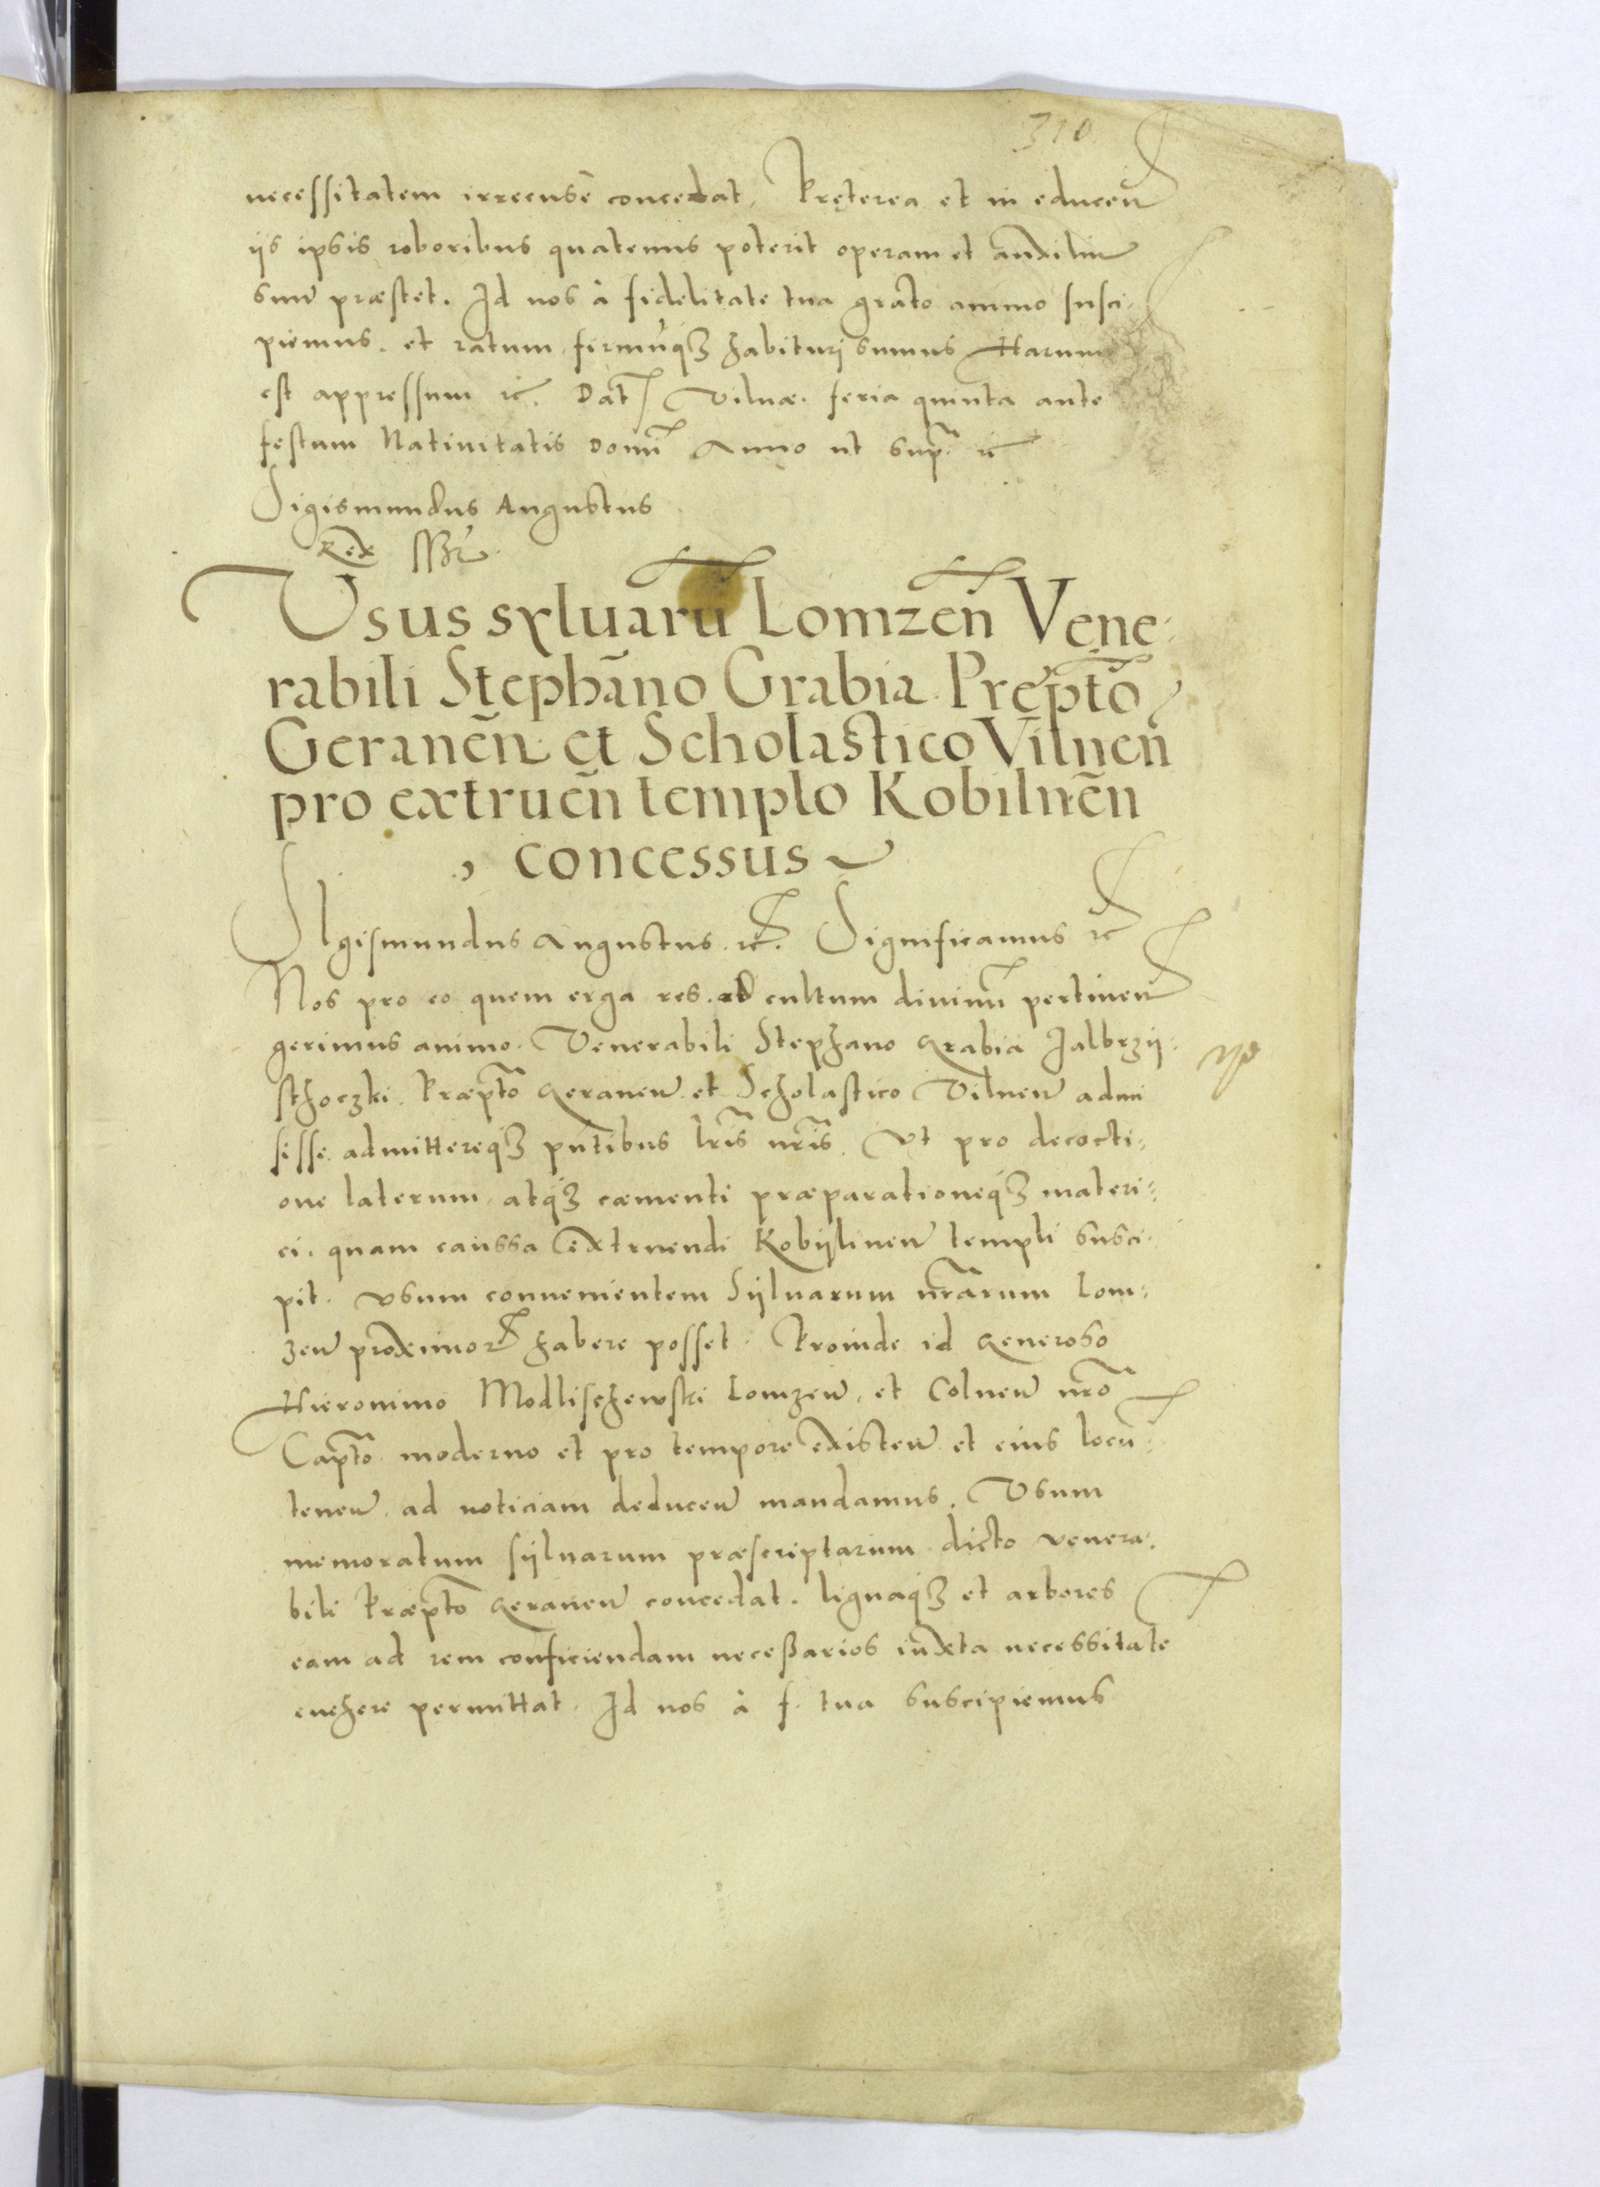 310
necessitatem irrecusē concedat. Pręterea et in educen̄
ijs ipsis roboribus quatenus poterit operam et auxiliū
suū præstet. Id nos à fidelitate tua grato animo susci-
piemus. et ratum firmūq₃ habituri sumus Harum
est appressum ꝛc. Dat Vilnæ. feria quinta ante
festum Natiuitatis Domī Anno ut supr̃ ꝛc
Sigismundus Augustus
Rex
Vsus syluarū Lomzen̄ Vene-
rabili Stephāno Grabia Prepto
Geranen̄ et Scholastico Vilnen̄
pro extruen̄ templo Kobilnen̄
concessus
SIgismundus Augustus ꝛc. Significamus ꝛc
Nos pro eo quem erga res ad cultum diuinū pertinen̄
gerimus animo. Venerabili Stephano Grabia Jalbrzij-
sthoczki Præpto Geranen̄ et Scholastico Vilnen̄ admi
sisse admittereq₃ pntibus lris nris. Vt pro decocti-
one laterum atq₃ cæmenti præparationeq₃ materi-
ei. quam caussa extruendi Kobijlinen̄ templi susci-
pit. vsum conuenientem Sijluarum nrarum Lom-
zen̄ proximor̄ habere posset. Proinde id Generoso
Hieronimo Modlischewski Lomzen̄ et Colnen̄ nro
Capto moderno et pro tempore existen̄ et eius locū-
tenen̄ ad noticiam deducen̄ mandamus. Vsum
memoratum sijluarum præscriptarum dicto venera-
bili Præpto Geranen̄ concedat. lignaq₃ et arbores
eam ad rem conficiendam neceßarios iuxta necessitatē
euehere permittat. Id nos à f. tua suscipiemus